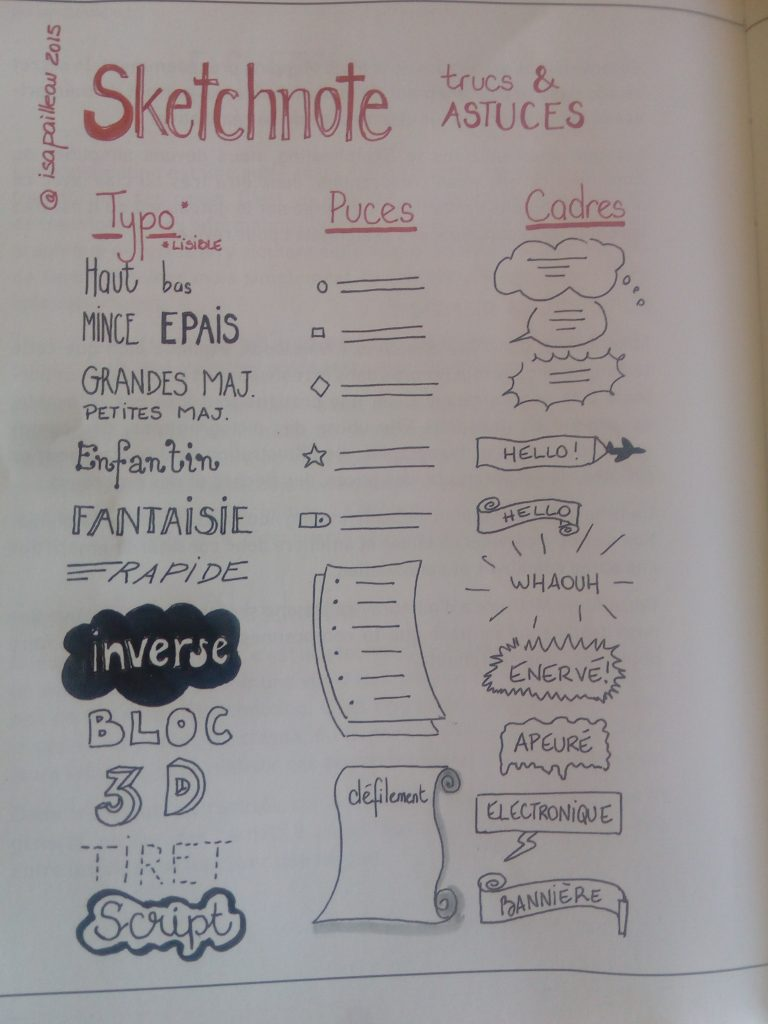 @ isapailleau 2015
Sketchnote
trucs &
ASTUCES
Typo*
*LISIBLE
Haut bas
MINCE EPAIS
GRANDES MAJ.
PETITES MAJ.
Enfantin
FANTAISIE
RAPIDE
inverse
BLOC
3D
TIRET
Script
Puces
défilement
Cadres
HELLO!
HELLO
WHAOUH
ENERVÉ!
APEURÉ
ELECTRONIQUE
BANNIÈRE